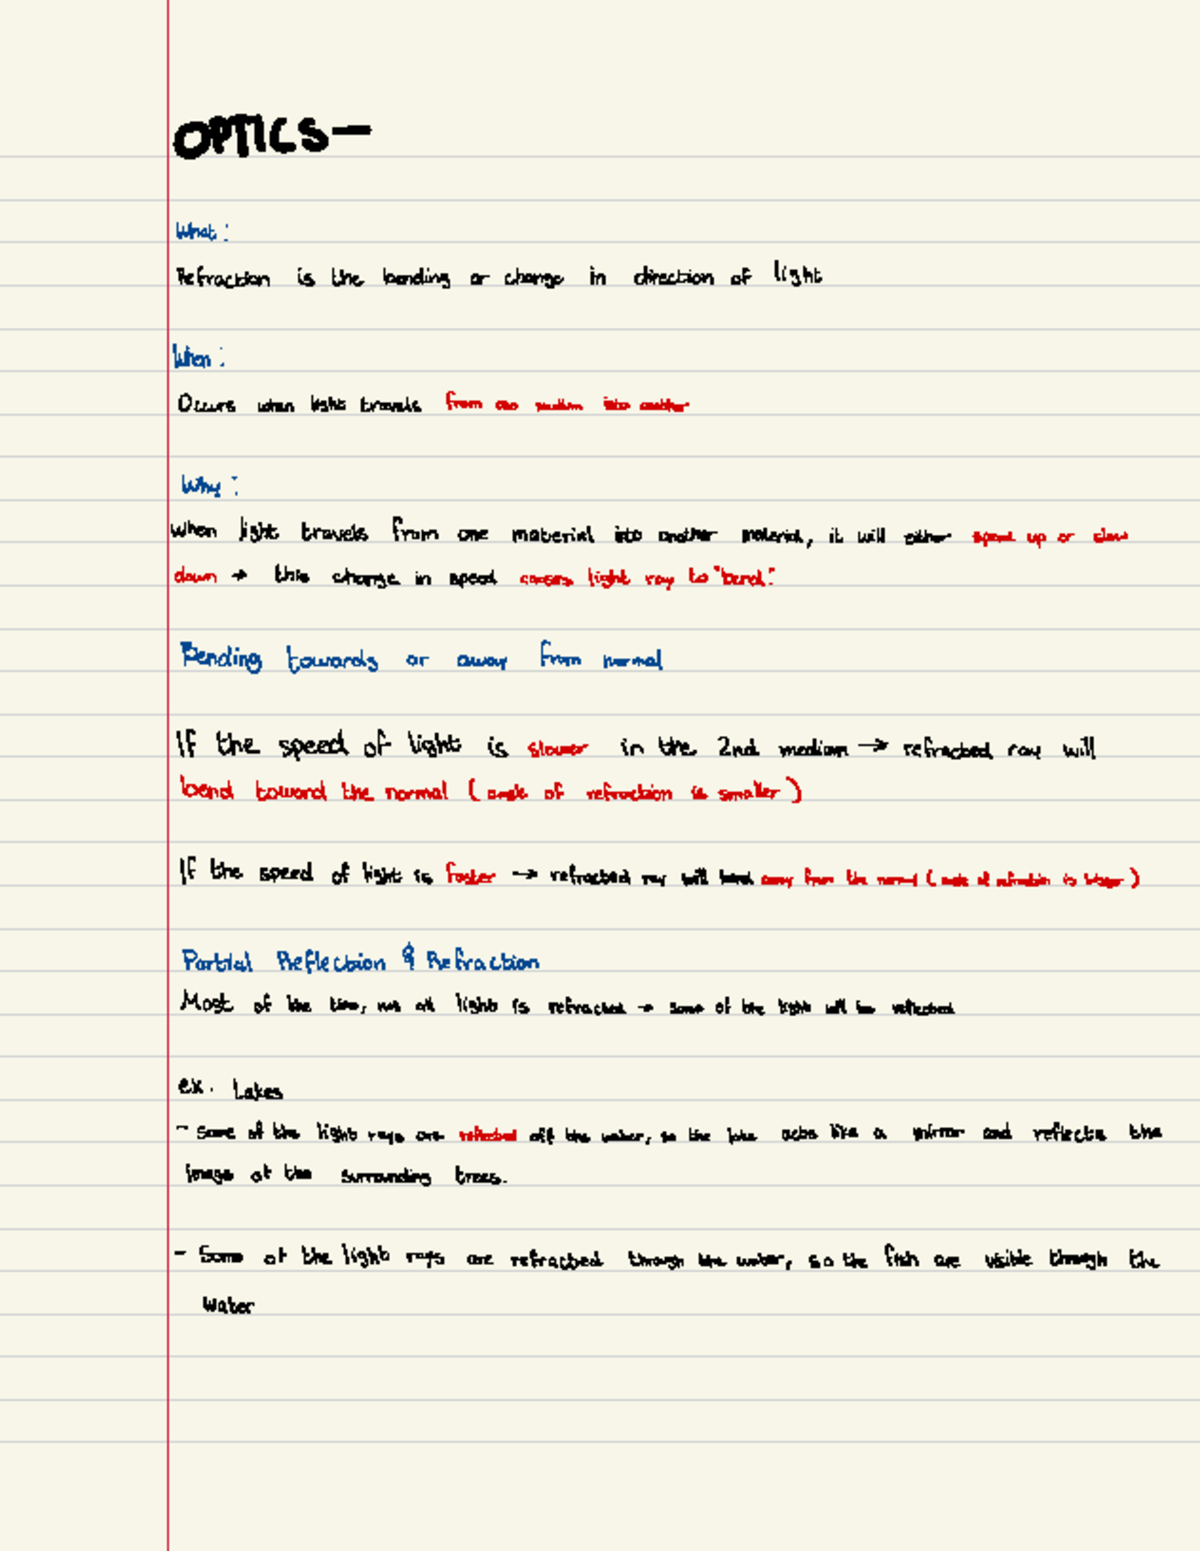 OPTICS—
What:
Refraction is the bending or change in direction of light
When:
Occurs when light travels from one medium into another
Why:
When light travels from one material into another material, it will either speed up or slow
down → this change in speed causes light ray to "bend".
Bending towards or away from normal
If the speed of light is slower in the 2nd medium → refracted ray will
bend toward the normal (angle of refraction is smaller)
If the speed of light is faster → refracted ray will bend away from the normal (angle of refraction is bigger)
Partial Reflection & Refraction
Most of the time, not all light is refracted → some of the light will be reflected
ex. Lakes
- Some of the light rays are reflected off the water, so the lake acts like a mirror and reflects the
image of the surrounding trees.
- Some of the light rays are refracted through the water, so the fish are visible through the
water